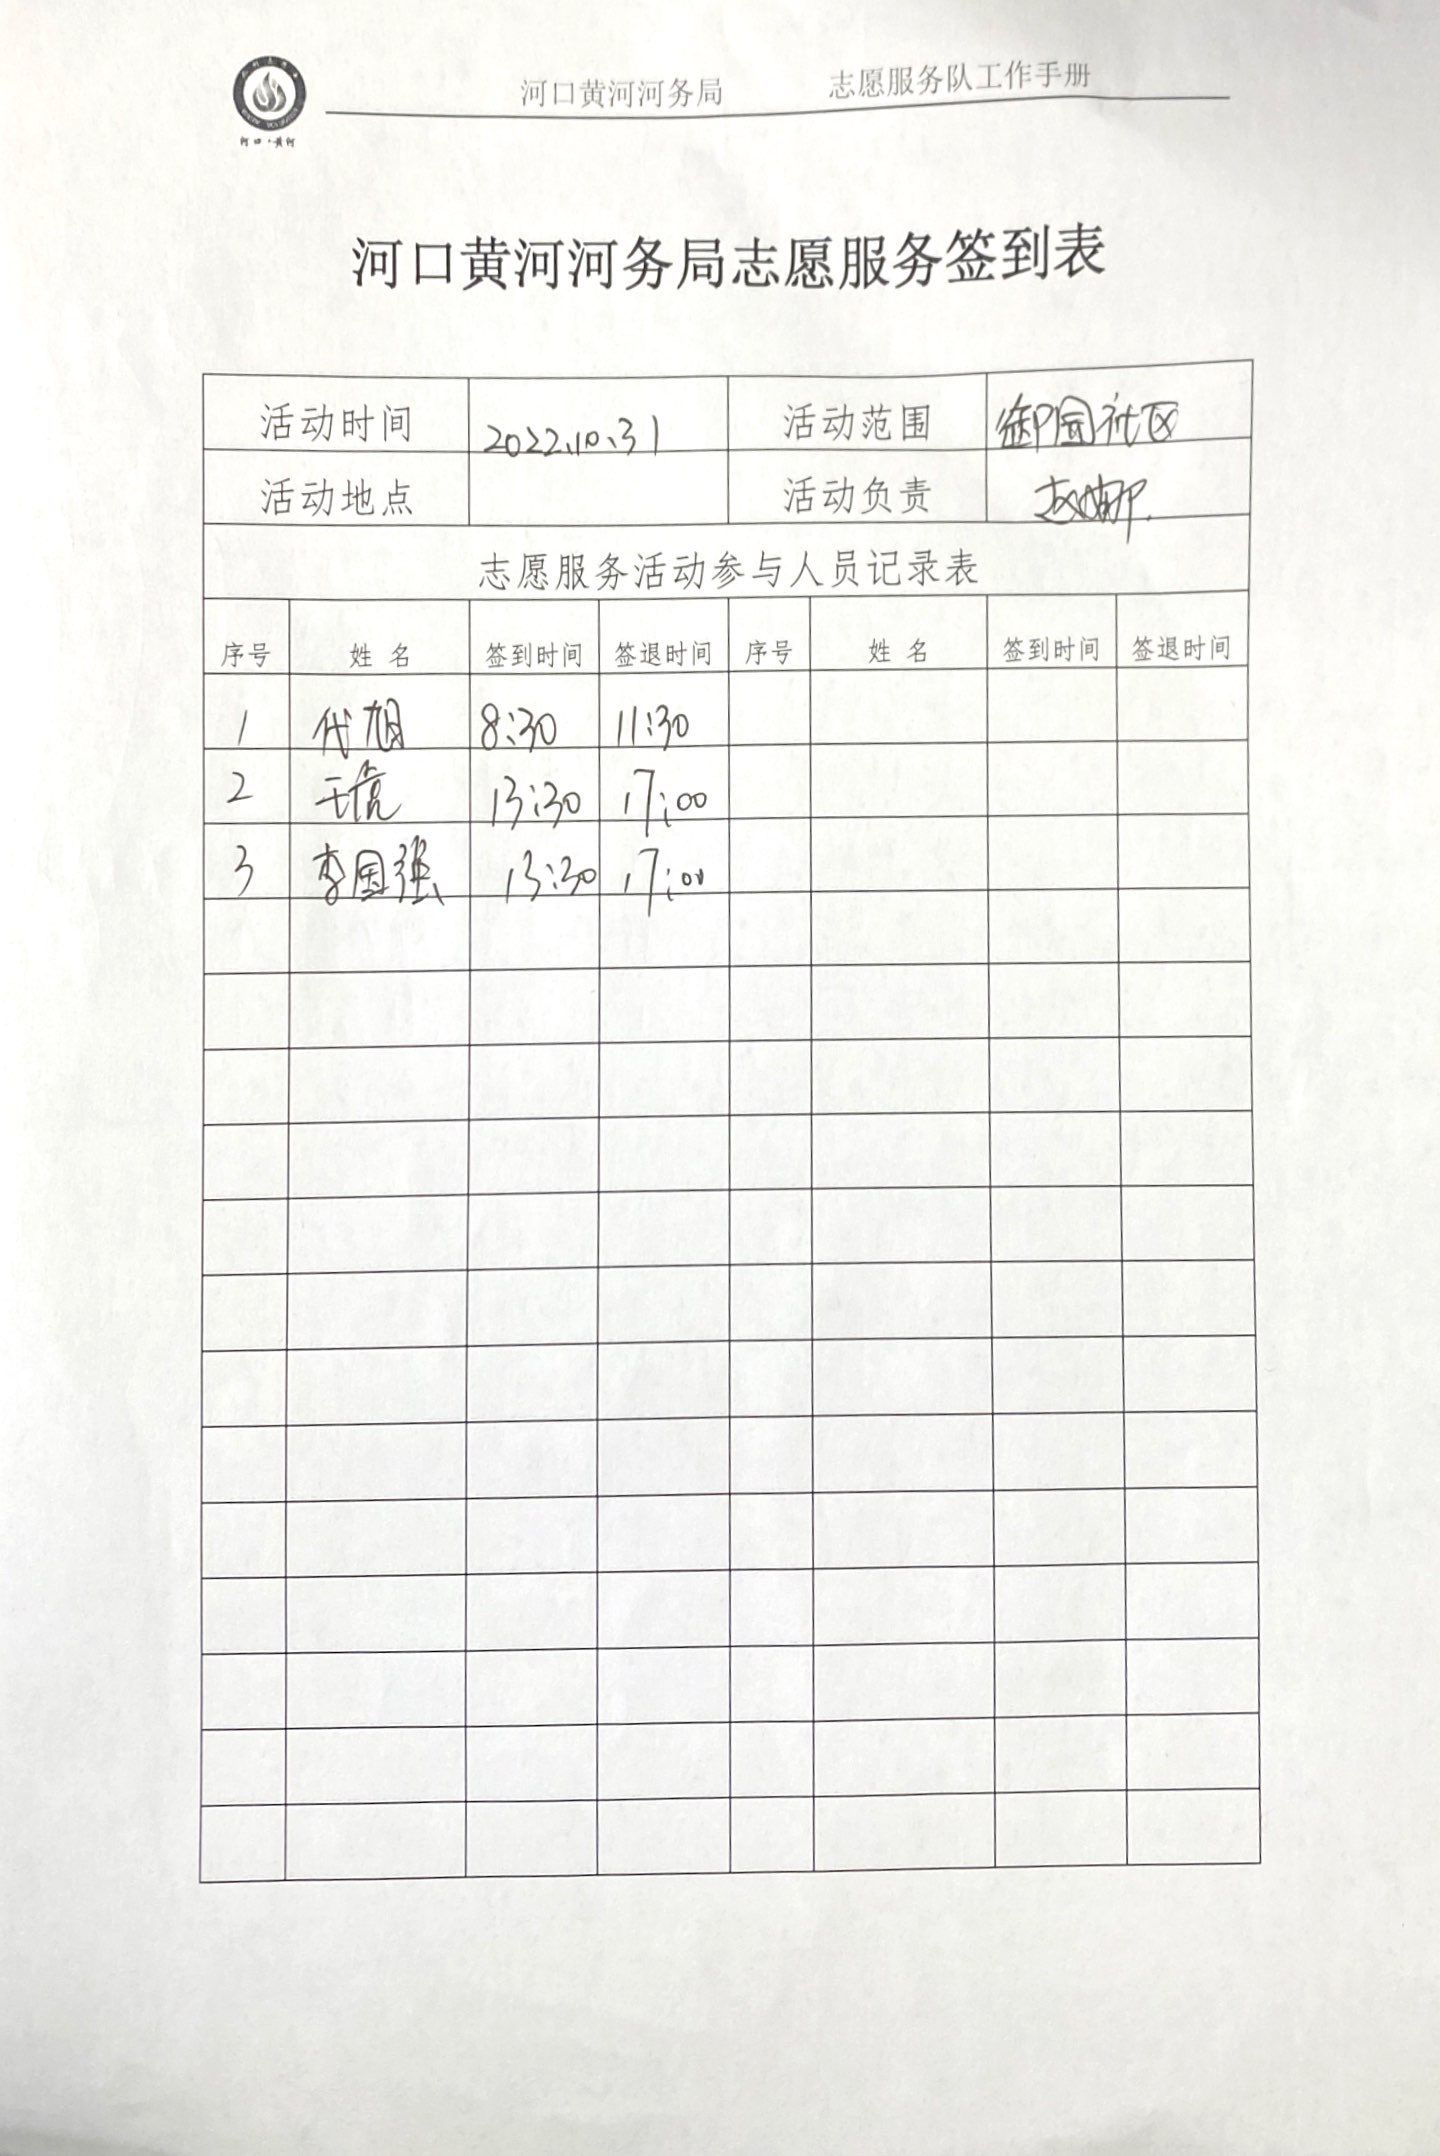 河口·黄河
河口黄河河务局 志愿服务队工作手册
河口黄河河务局志愿服务签到表
活动时间 2022.10.31 活动范围 御园社区
活动地点 活动负责 赵娜
志愿服务活动参与人员记录表
序号 姓 名 签到时间 签退时间 序号 姓 名 签到时间 签退时间
1 代旭 8:30 11:30
2 王亮 13:30 17:00
3 李国强 13:30 17:00